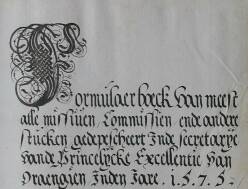 Formulaer boeck Van meest
alle missiuen, Commissien ende andere
stucken gedepescheert Inde secretarye
Vande Princelycke Excellentie Van
Oraengien Inden Jare. 1.5.7.5.